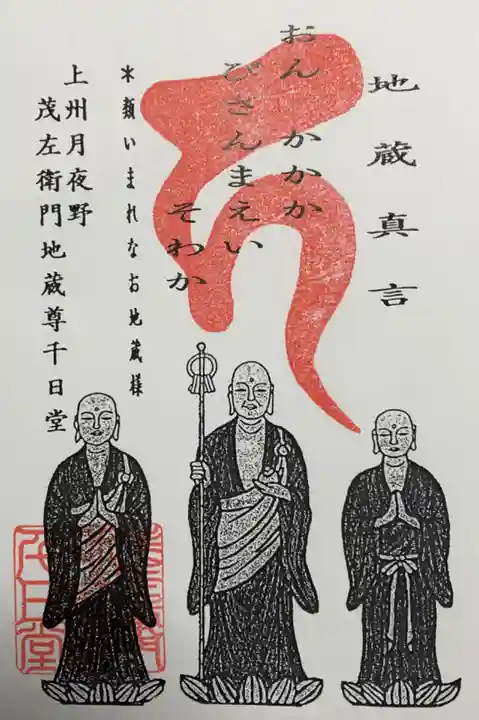 地蔵真言
おん かかか
びさんまえい
そわか
＊類いまれなお地蔵様
上州月夜野
茂左衛門地蔵尊千日堂